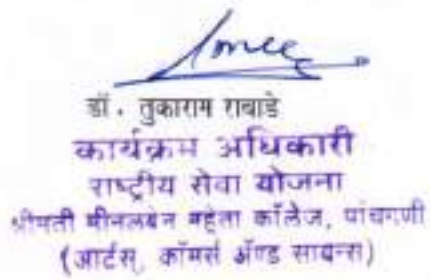 डॉ. तुकाराम राबाडे
कार्यक्रम अधिकारी
राष्ट्रीय सेवा योजना
श्रीमती मीनलबेन महेता कॉलेज, पांचगणी
(आर्टस्, कॉमर्स ॲण्ड सायन्स)